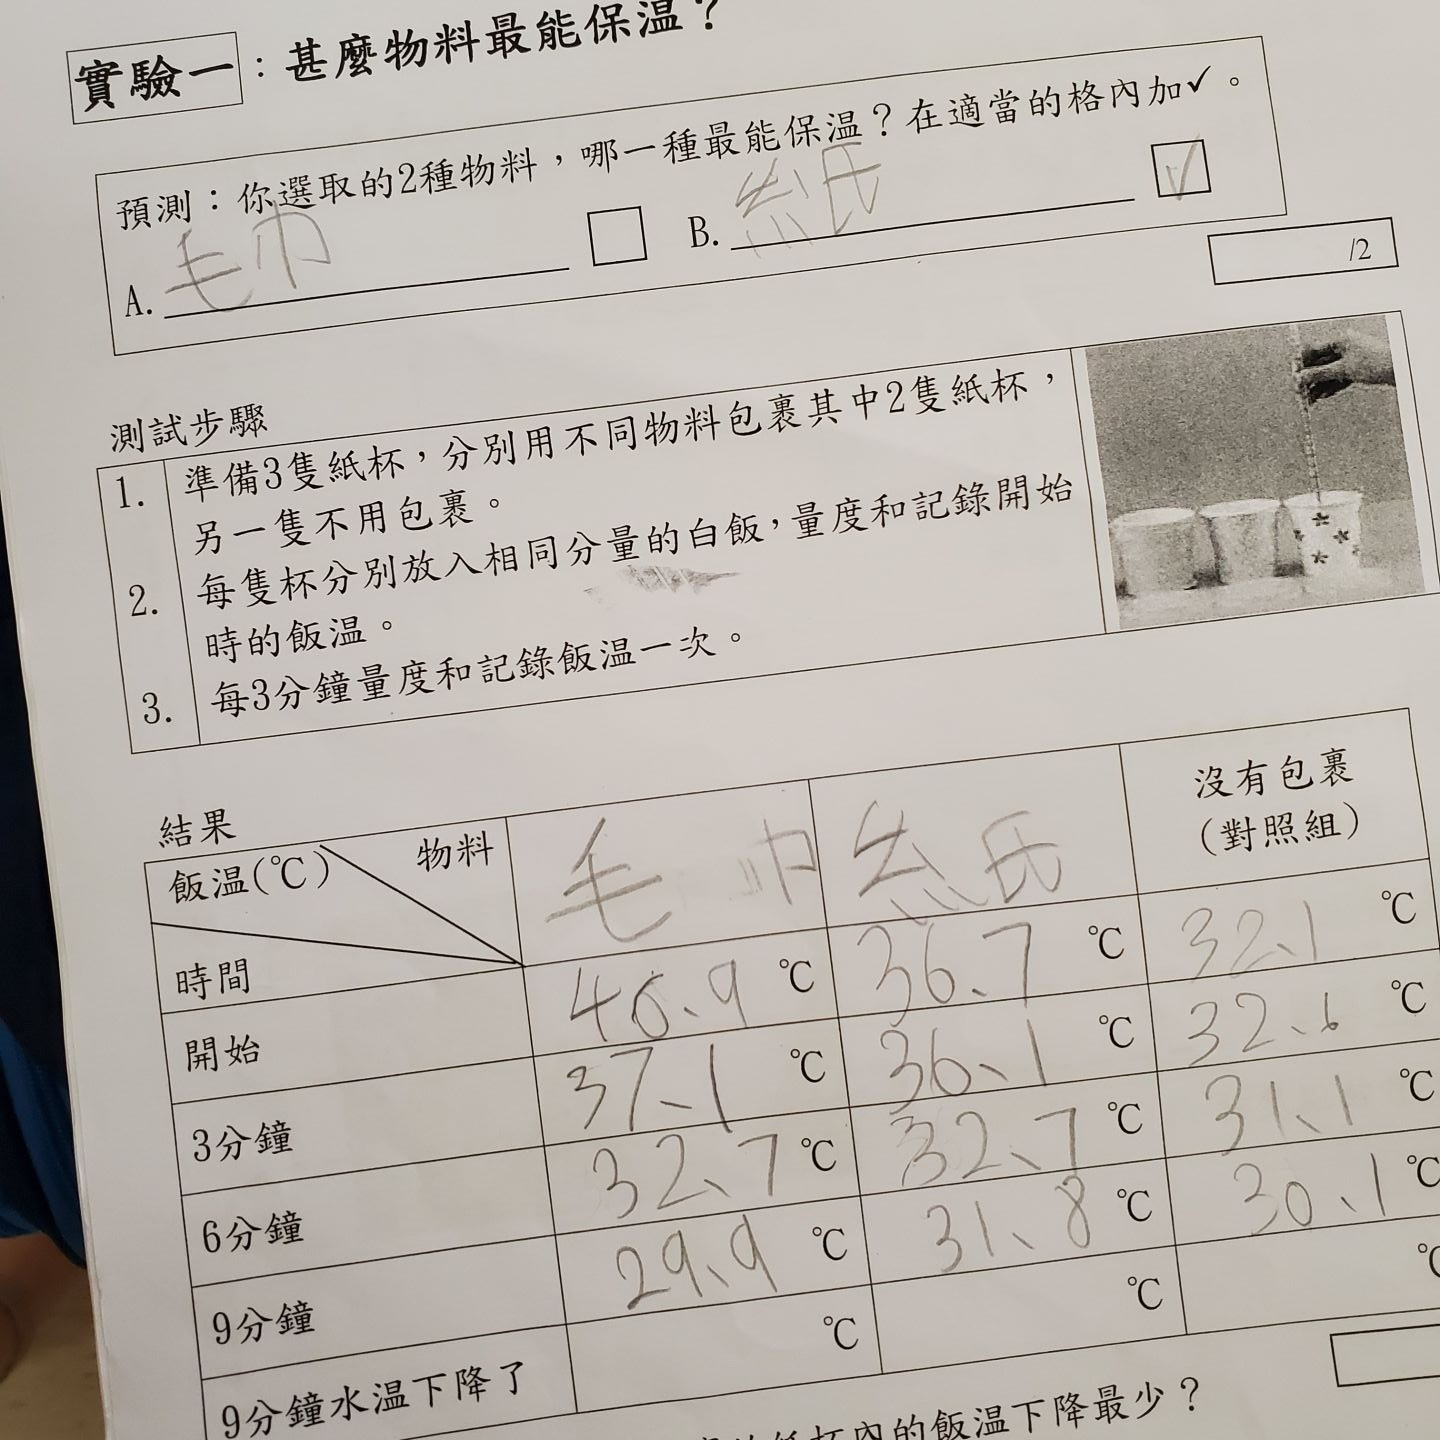 實驗一：甚麼物料最能保温？
預測：你選取的2種物料，哪一種最能保温？在適當的格內加✓。
A. 毛巾 B. 紙 ✓
/2
測試步驟
1. 準備3隻紙杯，分別用不同物料包裹其中2隻紙杯，
另一隻不用包裹。
2. 每隻杯分別放入相同分量的白飯，量度和記錄開始
時的飯温。
3. 每3分鐘量度和記錄飯温一次。
結果
飯温(℃) 物料 時間 毛巾 紙 沒有包裹
(對照組)
開始 46.9 ℃ 36.7 ℃ 32.1 ℃
3分鐘 37.1 ℃ 36.1 ℃ 32.6 ℃
6分鐘 32.7 ℃ 32.7 ℃ 31.1 ℃
9分鐘 29.9 ℃ 31.8 ℃ 30.1 ℃
9分鐘水温下降了 ℃ ℃ ℃
紙杯內的飯温下降最少？